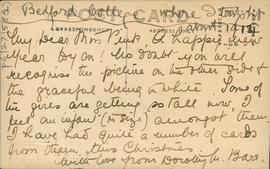 Bedford Coll. where I
POST CARD
CORRESPONDENCE
My Dear Mrs Pink. A happy New
Year by on! No doubt you will
recognise the picture on the other side &
the graceful being in white. Some of
the girls are getting so tall now, I
feel an infant (in size) amongst them.
I have had quite a number of cards
from them this Christmas.
With love from Dorothy M. Bars.